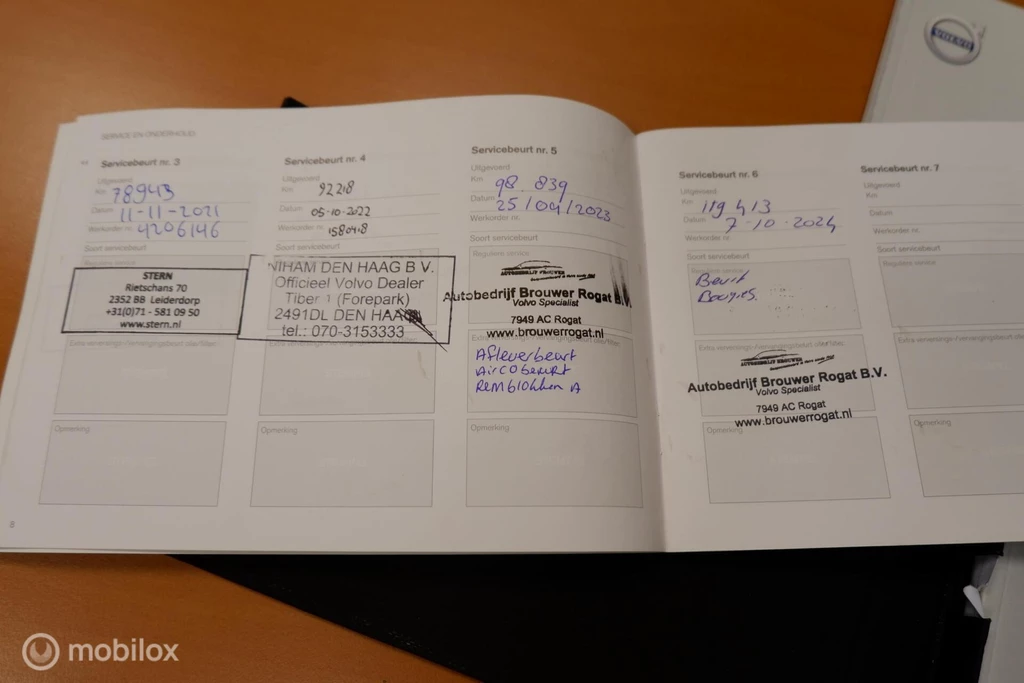 VOLVO
SERVICE EN ONDERHOUD
Servicebeurt nr. 3
Uitgevoerd
Km 78943
Datum 11-11-2021
Werkorder nr. 4206146
Soort servicebeurt
Reguliere service
STERN
Rietschans 70
2352 BB Leiderdorp
+31(0)71 - 581 09 50
www.stern.nl
Extra verversings-/vervangingsbeurt olie/filter
Opmerking
8
Servicebeurt nr. 4
Uitgevoerd
Km 92218
Datum 05-10-2022
Werkorder nr.
Soort servicebeurt
NTHAM DEN HAAG B V.
Officieel Volvo Dealer
Tiber 1 (Forepark)
2491DL DEN HAAG
tel.: 070-3153333
Opmerking
Servicebeurt nr. 5
Uitgevoerd
Km 98.839
Datum 25/04/2023
Werkorder nr.
Soort servicebeurt
Reguliere service
AUTOBEDRIJF BROUWER
Autobedrijf Brouwer Rogat B.V.
Volvo Specialist
7949 AC Rogat
www.brouwerrogat.nl
Afleverbeurt
Airco beurt
Remblokken A
Opmerking
Servicebeurt nr. 6
Uitgevoerd
Km 119413
Datum 7-10-2024
Werkorder nr.
Soort servicebeurt
Reguliere service
Beurt
Bougies.
Extra verversings-/vervangingsbeurt olie/filter
AUTOBEDRIJF BROUWER
Autobedrijf Brouwer Rogat B.V.
Volvo Specialist
7949 AC Rogat
www.brouwerrogat.nl
Opmerking
Servicebeurt nr. 7
Uitgevoerd
Km
Datum
Werkorder nr.
Soort servicebeurt
Reguliere service
Extra verversings-/vervangingsbeurt olie/filter
Opmerking
mobilox